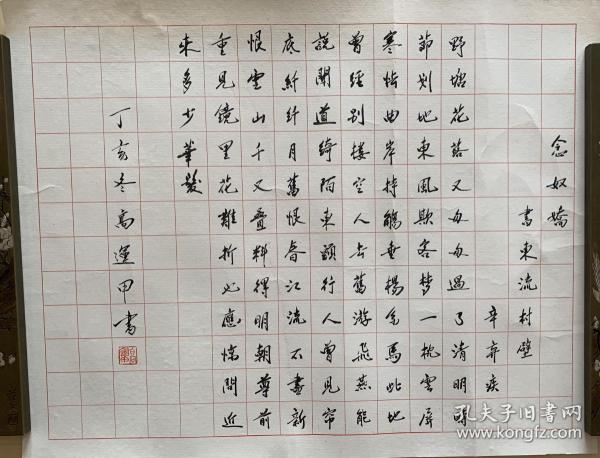 念奴嬌
書東流村壁
辛棄疾
野塘花落又匆匆過了清明時
節刬地東風欺客夢一枕雲屏
寒怯曲岸持觴垂楊系馬此地
曾經別樓空人去舊游飛燕能
說聞道綺陌東頭行人曾見帘
底纤纤月舊恨春江流不盡新
恨雲山千又疊料得明朝尊前
重見鏡里花難折也應惊問近
來多少華髮
丁亥冬高運甲書
孔夫子旧书网
www.kongfz.com